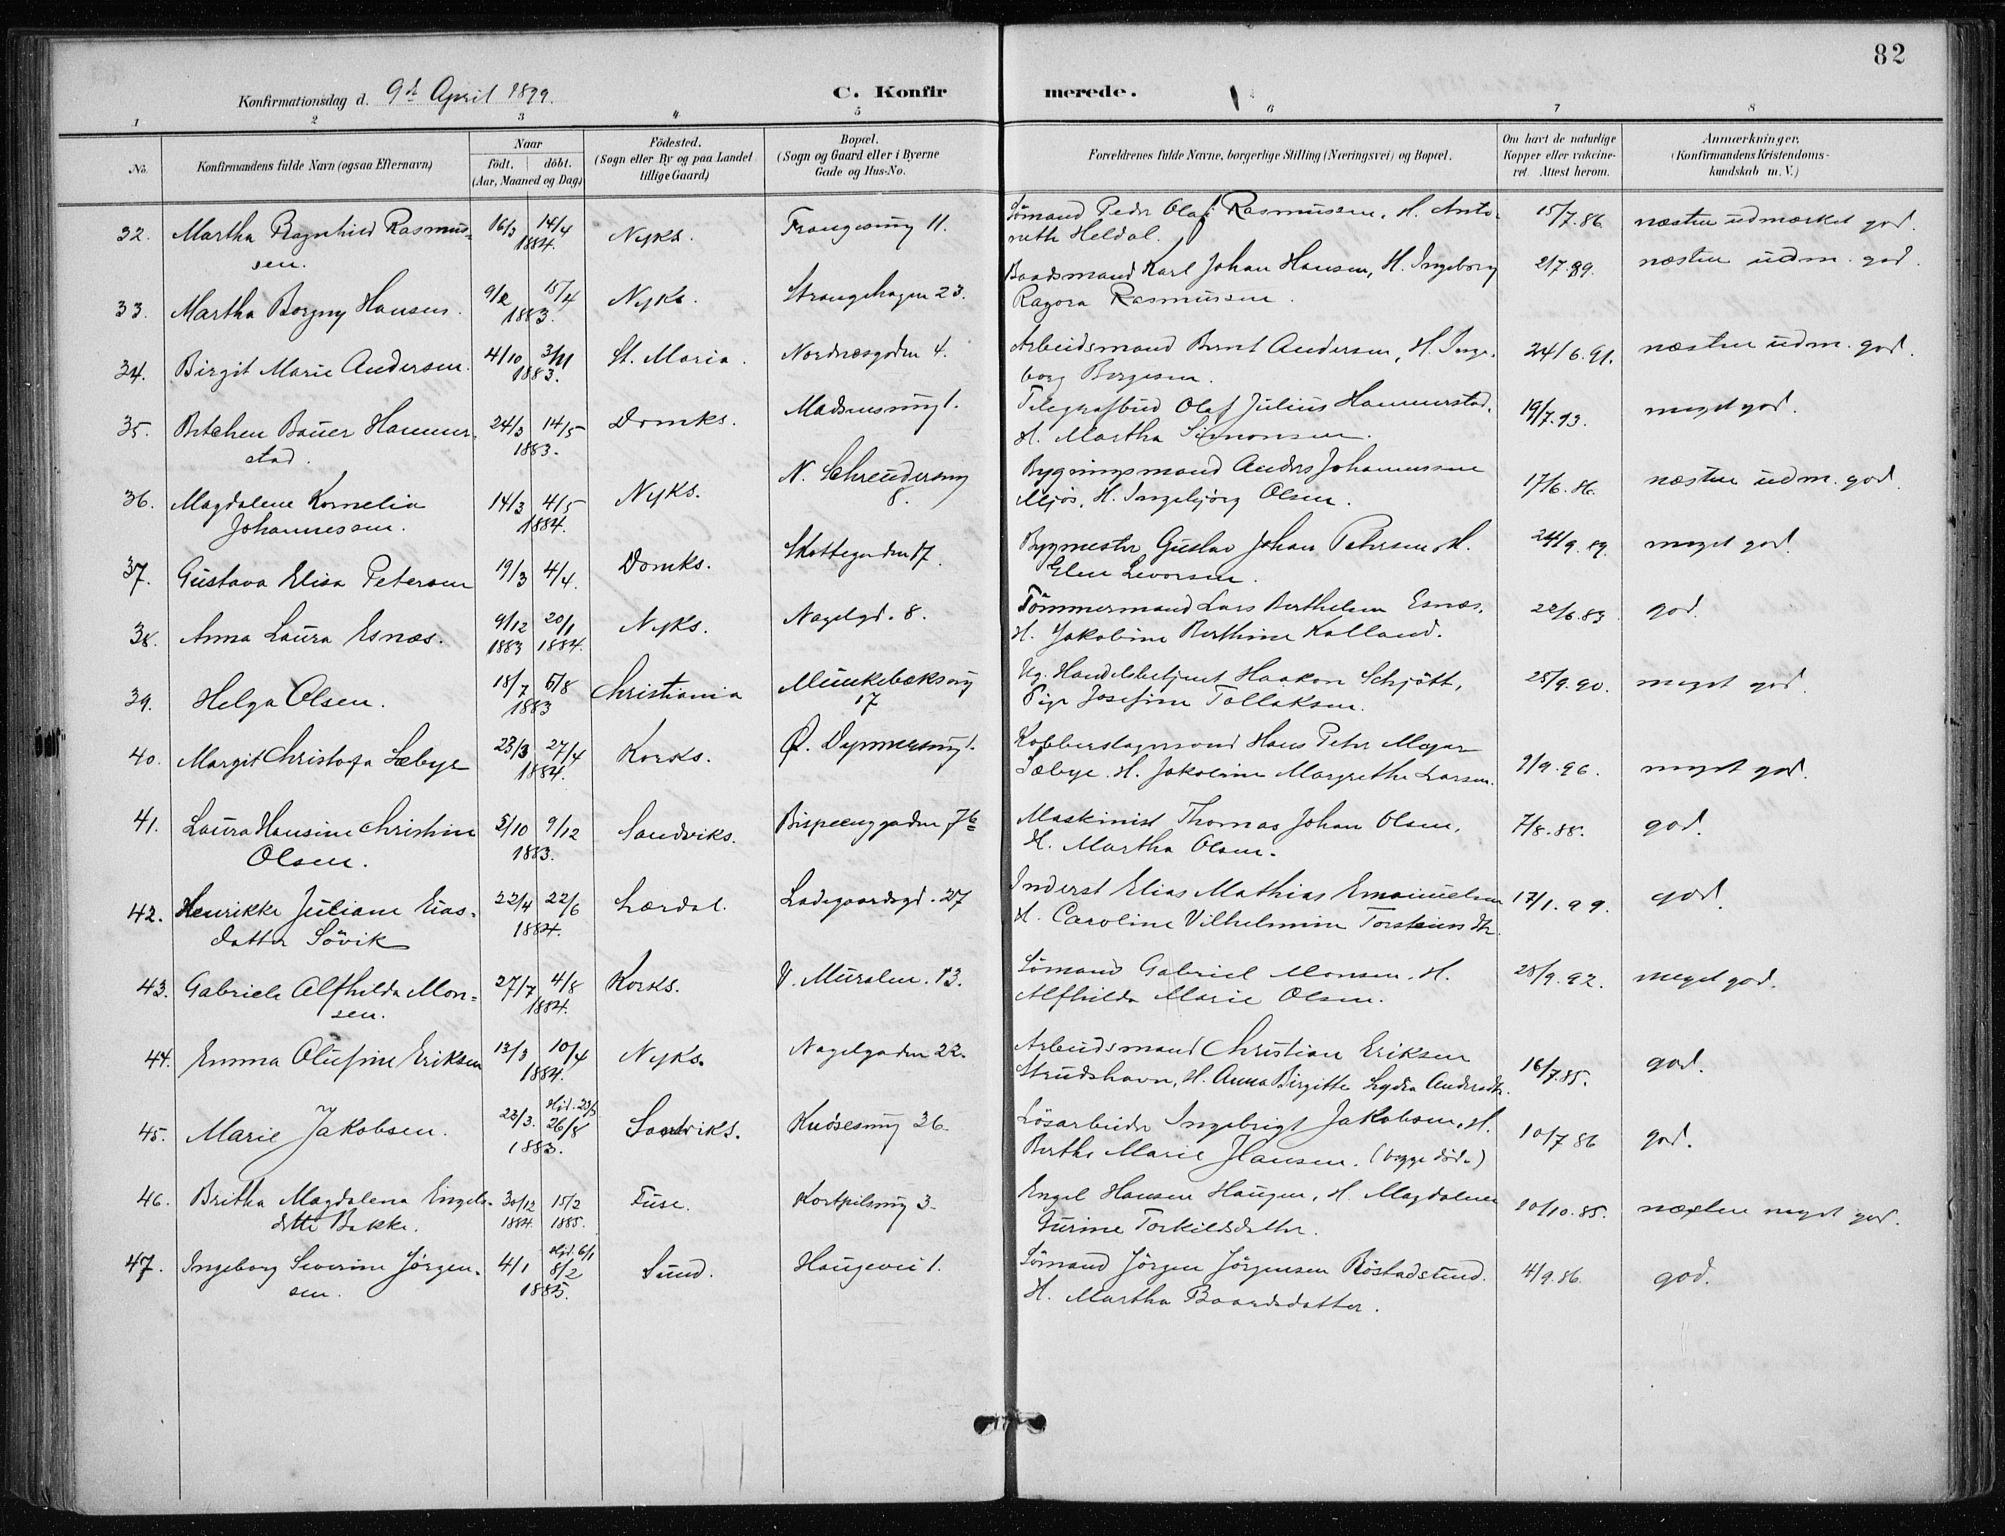 82
Konfirmationsdag d. 9de April 1899.
C. Konfirmerede.
1 2 3 4 5 6 7 8
No.
Konfirmandens fulde Navn (ogsaa Efternavn)
Naar
födt. döbt.
(Aar, Maaned og Dag)
Födested.
(Sogn eller By og paa Landet
tillige Gaard)
Bopæl.
(Sogn og Gaard eller i Byerne
Gade og Hus-No.
Forældrenes fulde Navne, borgerlige Stilling (Næringsvei) og Bopæl.
Om havt de naturlige
Kopper eller vakcine-
ret. Attest herom.
Anmærkninger.
(Konfirmandens Kristendoms-
kundskab m. V.)
32. Martha Ragnhild Rasmus-
sen.
16/3 14/4
1884.
Nyks.
11.
Sömand Peder Olaf Rasmussen, H. Anto-
nette Heldal.
15/7.86
næsten udmærket god.
33. Martha Borgny Hansen.
9/2 15/4
1883.
Nyks.
Strangehagen 23.
Baadsmand Karl Johan Hansen, H. Ingeborg
Ragora Rasmussen.
2/7.89.
næsten udm. god.
34. Birgit Marie Andersen.
4/10 3/11
1883.
St. Maria.
Nordnæsgaden 4.
Arbeidsmand Bernt Andersen, H. Inge-
borg Börgesen.
24/6.91.
næsten udm. god.
35. Betchen Bauer Hammer-
stad.
24/3 14/5
1883.
Domks.
Madsensmug 1.
Telegrafbud Olaf Julius Hammerstad,
H. Martha Simonsen.
19/7.93.
meget god.
36. Magdalene Kornelia
Johannessen.
14/3 4/5
1884.
Nyks.
N. Schreudersmug
8.
Bygningsmand Anders Johannessen
Mjös, H. Ingebjörg Olsen.
17/6.86.
næsten udm. god.
37. Gustava Elisa Petersen
19/3 4/4.
Domks.
Skottegaden 17.
Bygmester Gustav Johan Petersen, H.
Elen Levorsen.
24/9.89.
meget god.
38. Anna Laura Esnæs.
9/12 20/1
1883 1884.
Nyks.
Nagelgd. 8.
Tömmermand Lars Berthelsen Esnæs,
H. Jakobine Berthine Kalland.
22/6.83
god.
39. Helga Olsen.
18/7 5/8
1883
Christiania
Munkebæksmug
17
Ug. Handelsbetjent Haakon Schjött,
Pige Josefine Tollaksen.
25/9.90.
meget god.
40. Margit Christofa Sæbye
23/3 27/4
1884.
Korsks.
Ø. Dynnersmug 1.
Kobberslagersvend Hans Peter Meyer
Sæbye, H. Jakobine Margrethe Larsen.
9/9.96.
meget god.
41. Laura Hansine Christine
Olsen.
5/10 9/12
1883.
Sandviks.
Bispeenggaden 7b
Maskinist Thomas Johan Olsen,
H. Martha Olsen.
7/8.88.
god.
42. Henrikke Juliane Elias-
datter Sövik
22/4 22/6
1884.
Lærdal.
Ladegaardsgd. 27
Inderst Elias Mathias Emanuelsen
H. Caroline Vilhelmine Torsteinsdtr.
17/1.99.
god.
43. Gabriele Alfhilda Mon-
sen.
27/7 4/8
1884.
Korsks.
V. Muralm. 13.
Sömand Gabriel Monsen, H.
Alfhilda Marie Olsen.
28/9.92.
meget god.
44. Emma Olufine Eriksen
13/3 10/4
1884.
Nyks.
Nagelgaden 22.
Arbeidsmand Christian Eriksen
Strudshavn, H. Anna Birgitte Lydia Andersdtr.
16/7.85.
god.
45. Marie Jakobsen.
23/3. Hjd. 23/3
26/8
1883.
Sandviks.
Knösesmug 36.
Lösarbeider Ingebrigt Jakobsen, H.
Berthe Marie Hansen. (begge döde)
10/7 86
god.
46. Britha Magdalena Engels-
dtte Bakke.
30/12 15/2
1884. 1885.
Fuse.
Kortpilsmug 3.
Engel Hansen Haugen, H. Magdalene
Gurine Torkildsdatter.
10/10.85.
næsten meget god.
47. Ingeborg Severine Jörgen-
sen.
4/1 Hjd. 6/1
8/2
1885.
Sund.
Haugevei 1.
Sömand Jörgen Jörgensen Röstadsund.
H. Martha Baardsdatter.
4/9.86.
god.